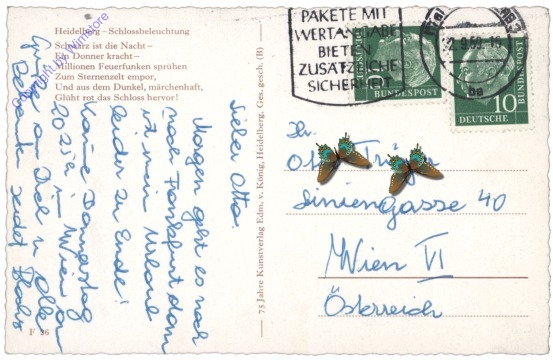 Heidelberg – Schlossbeleuchtung
Schwarz ist die Nacht –
Ein Donner kracht –
Millionen Feuerfunken sprühen
Zum Sternenzelt empor,
Und aus dem Dunkel, märchenhaft,
Glüht rot das Schloss hervor!
Copyright by Wimstore
Lieber Otto.
Morgen geht es noch
nach Frankfurt dann
ist mein Urlaub
leider zu Ende!
Komme Donnerstag
20 25h in Wien an
Grüße an Dich u. alle
F 26
75 Jahre Kunstverlag Edm. v. König, Heidelberg. Ges. gesch. (B)
PAKETE MIT
WERTANGABE
BIETEN
ZUSÄTZLICHE
SICHERHEIT
2.9.59.-15
DEUTSCHE
BUNDESPOST
10
DEUTSCHE
BUNDESPOST
Hr.
Liniengasse 40
Wien VI
Österreich